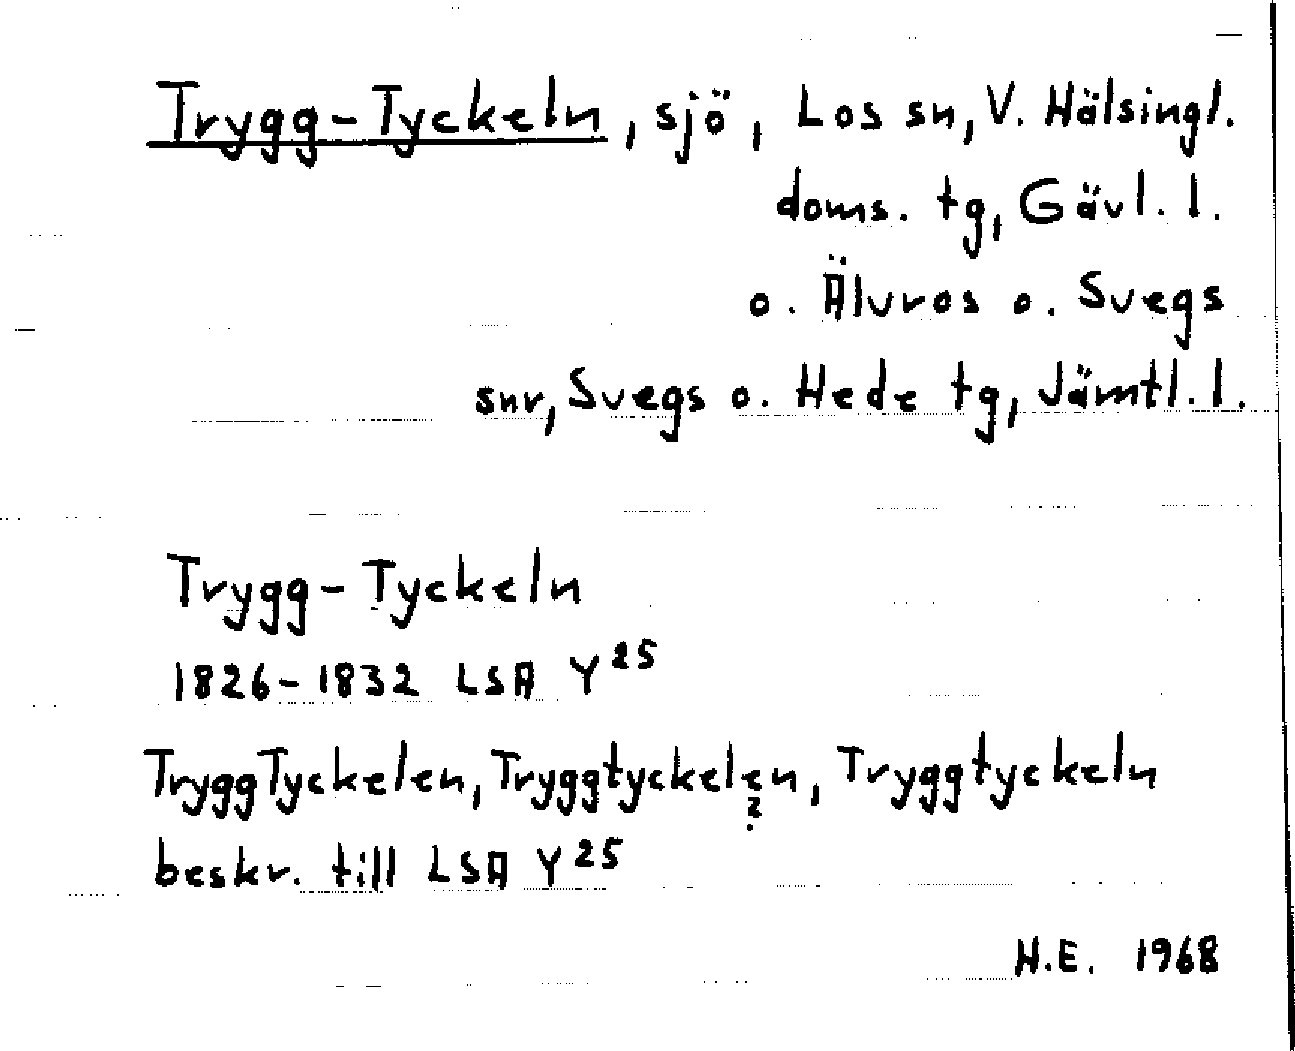 Trygg-Tyckeln, sjö, Los sn, V. Hälsingl.
doms. tg, Gävl. l.
o. Älvros o. Svegs
snr, Svegs o. Hede tg, Jämtl. l.
Trygg-Tyckeln
1826-1832 LSA Y 25
TryggTyckelen, Tryggtyckelen, Tryggtyckeln
?
beskr. till LSA Y 25
H.E. 1968